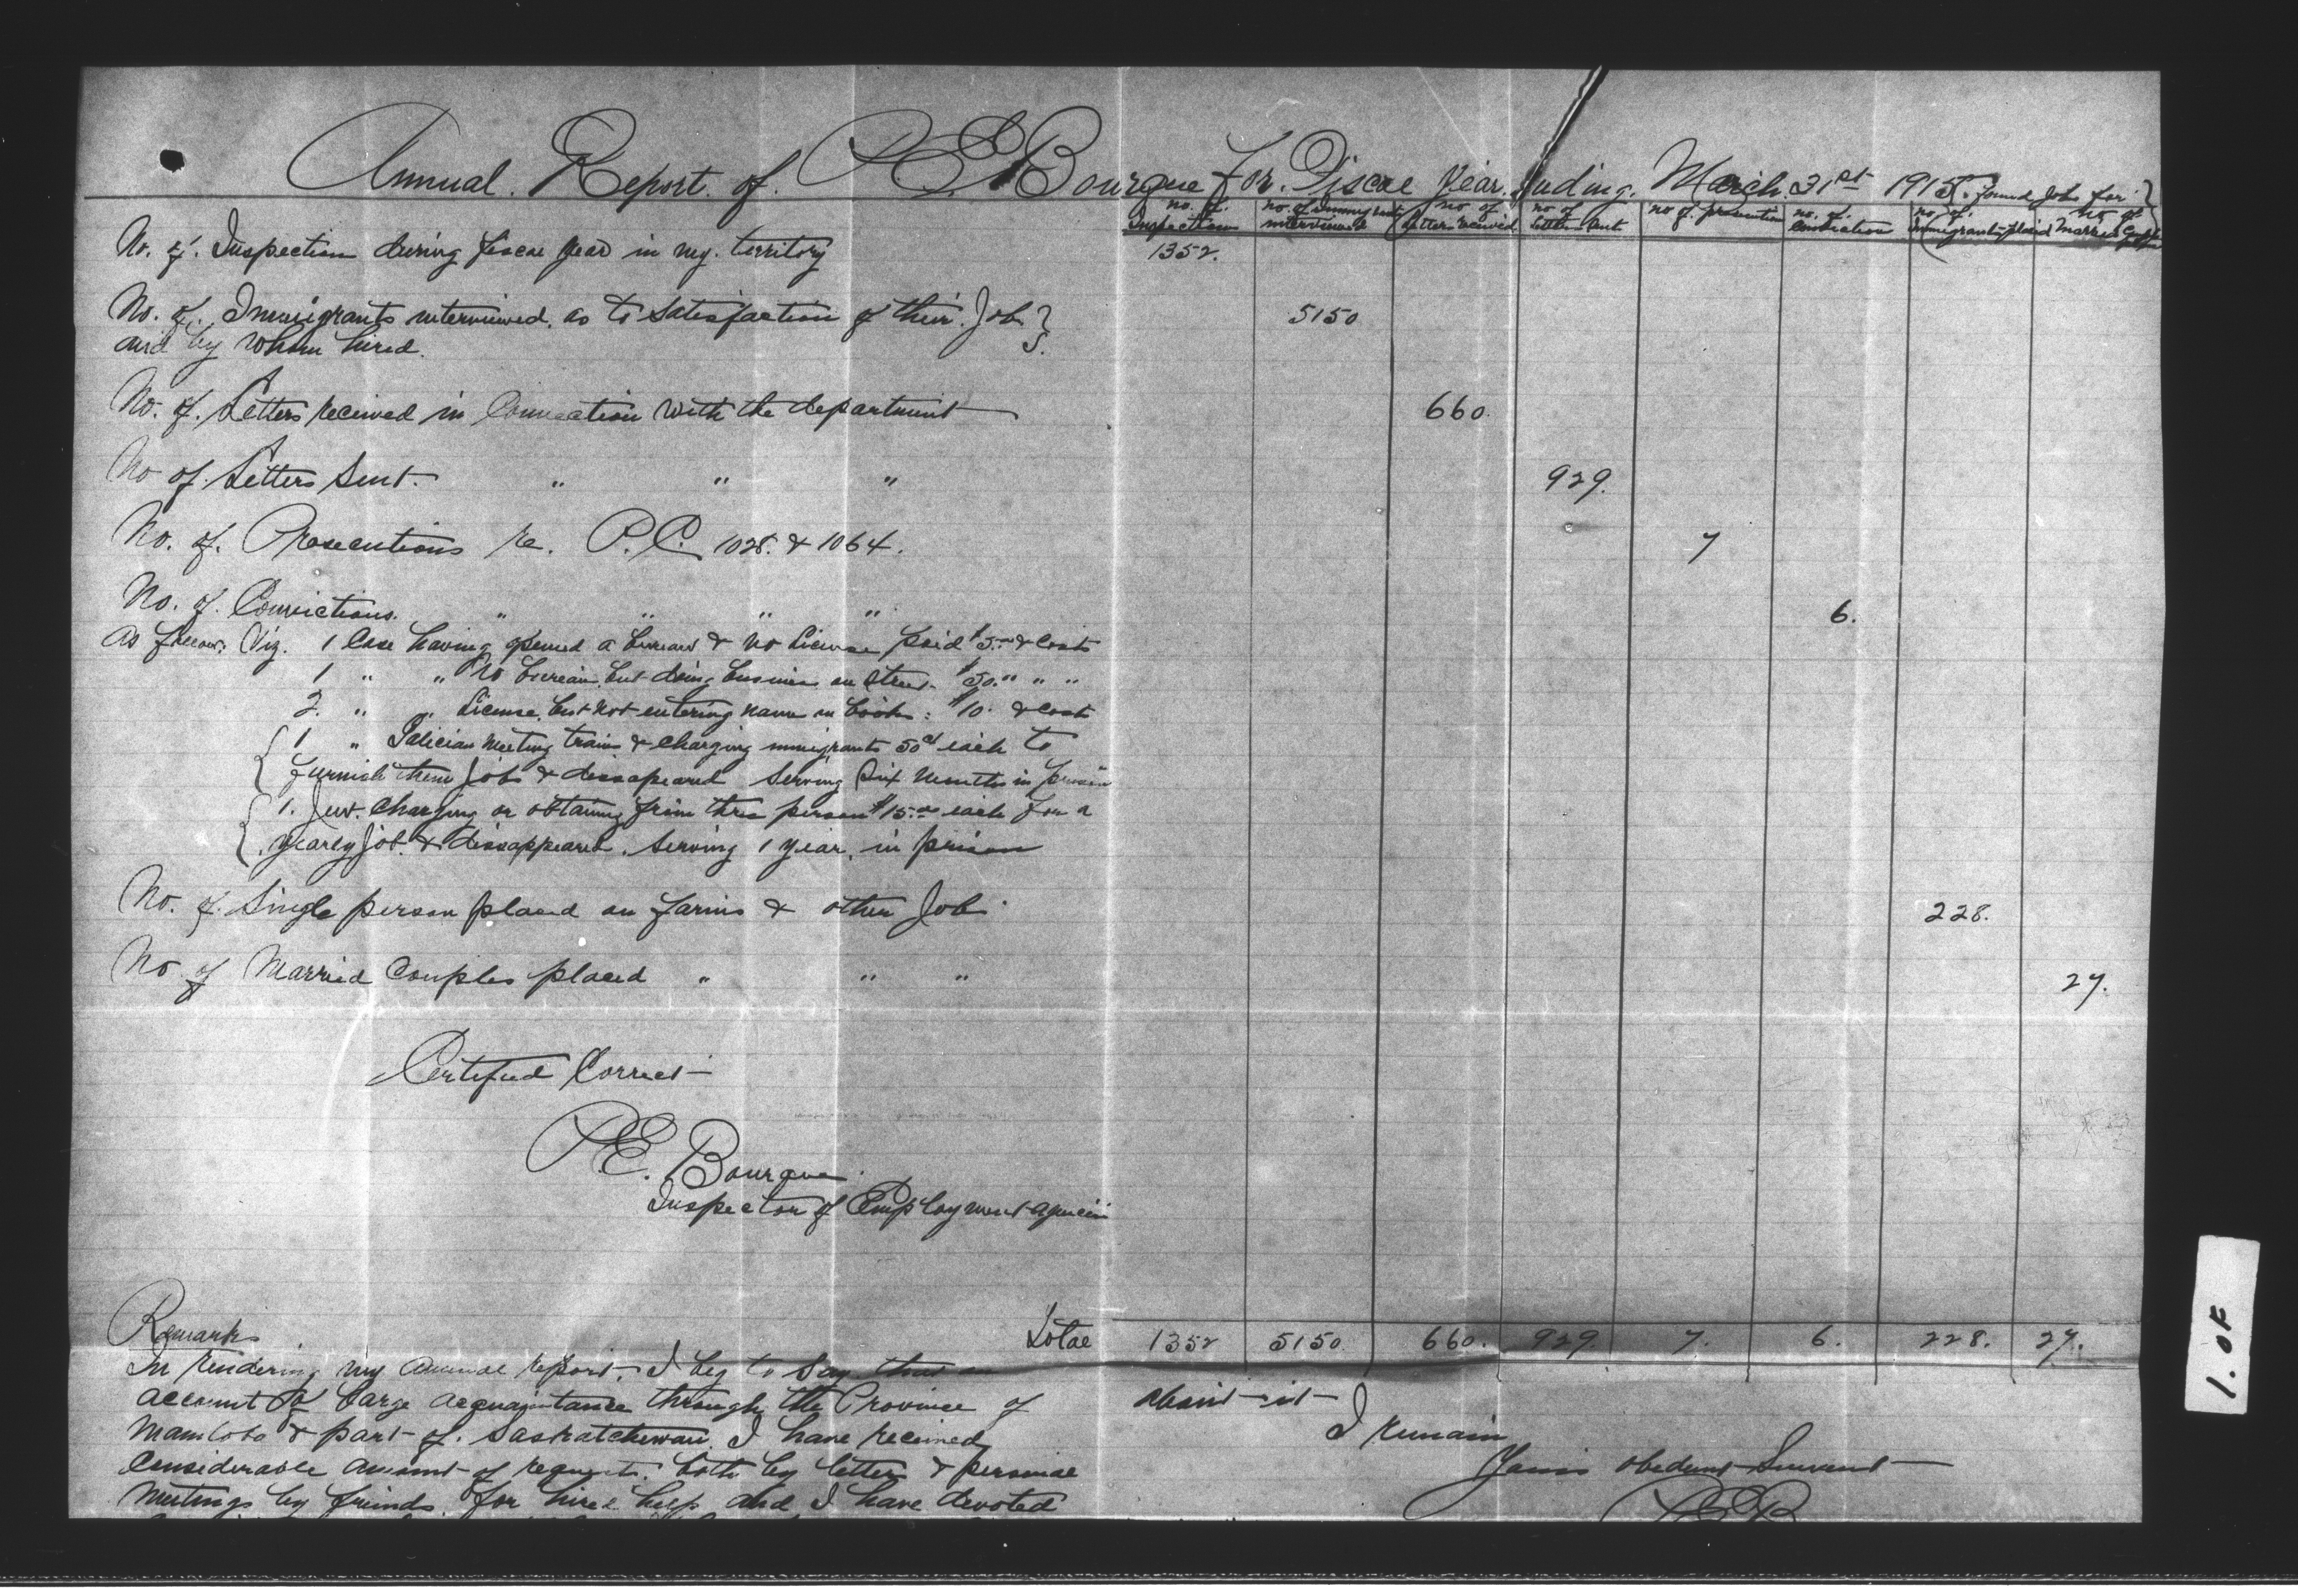 Annual. Report. of. P.E. Bourque For. Fiscal Year. Ending. March. 31st 1915. Found Jobs for
no. of. Inspections
no. of Immigrants interviewed
no of letters received
no of letters sent
no of. prosecution
no. of. Conviction
no. of. Immigrants placed
no of Married Couples
No. of. Inspection during fiscal year in my. territory 1352.
No. of. Immigrants interviewed. as to satisfaction of their. Jobs. 5150
and by whom hired.
No. of. Letters received in Connection with the department 660.
No of. Letters Sent. " " " 929.
No. of. Prosecutions re. P.C. 1028. & 1064. 7
No. of. Convictions. " " " " 6.
As follows. Viz. 1 Case having opened a bureau & no license paid $5.00 & Costs
1 " " No bureau. but doing business on Street. $50. " " "
2. " " License. but not entering name in books: $10. & Costs
1 " Galician meeting trains & charging immigrants 50cts each to
furnish them Jobs & dissapeared serving Six months in prison
1. Jew. Charging or obtaining from three person $15.00 each for a
yearly Job. & dissappeared. serving 1 year. in prison
No. of. Single person placed on farms & other Job. 228.
No of Married Couples placed " " " 27.
Certified Correct
P.E. Bourque
Inspector of Employment agencies
Remarks
Total 1352 5150. 660. 929. 7. 6. 228. 27.
In rendering my annual report. I beg to say that on
account of large acquaintance through the Province of
Manitoba & part of. Saskatchewan. I have received
considerable amount of requests. both by letters & personal
meetings by friends for hired help and I have devoted
about it
I remain
Yours obedient Servant
P.E.B
1. OF